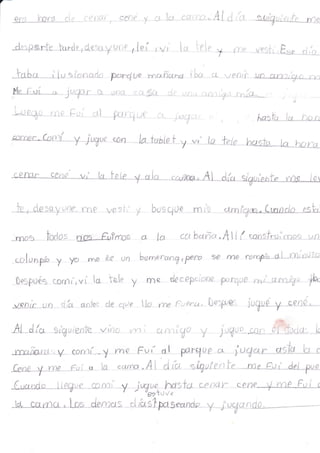 era hora de cenar, cené y a la cama. Al día siguiente me
desperte tarde, desayuné, leí, vi la tele y me vestí. Ese día
taba ilusionado porque mañana iba a venir un amigo
Me Fui a jugar a una casa de un amigo mío.
Luego me Fui al parque a jugar hasta la hora
comer. Comí y jugué con la tablet y vi la tele hasta la hora
cenar cené vi la tele y a la cama. Al día siguiente me le
te, desayuné me vestí y busque mis amigos. Cuando esta
mos todos nos Fuimos a la cabaña. Allí construimos un
columpio y yo me ice un bomerang, pero se me rompio al minuto
Después comí, vi la tele y me decepcione porque mi amigo iba
venir un día antes de que llo me Fuera. Despues jugué y cené.
Al día siguiente vino mi amigo y jugue con el toda l
mañana y comí y me Fui al parque a jugar asta la c
Cené y me Fui a la cama. Al día siguiente me Fui del pue
Cuando llegue comí y jugue hasta cenar cene y me Fui
la cama. Los demas días estuve paseando y jugando.